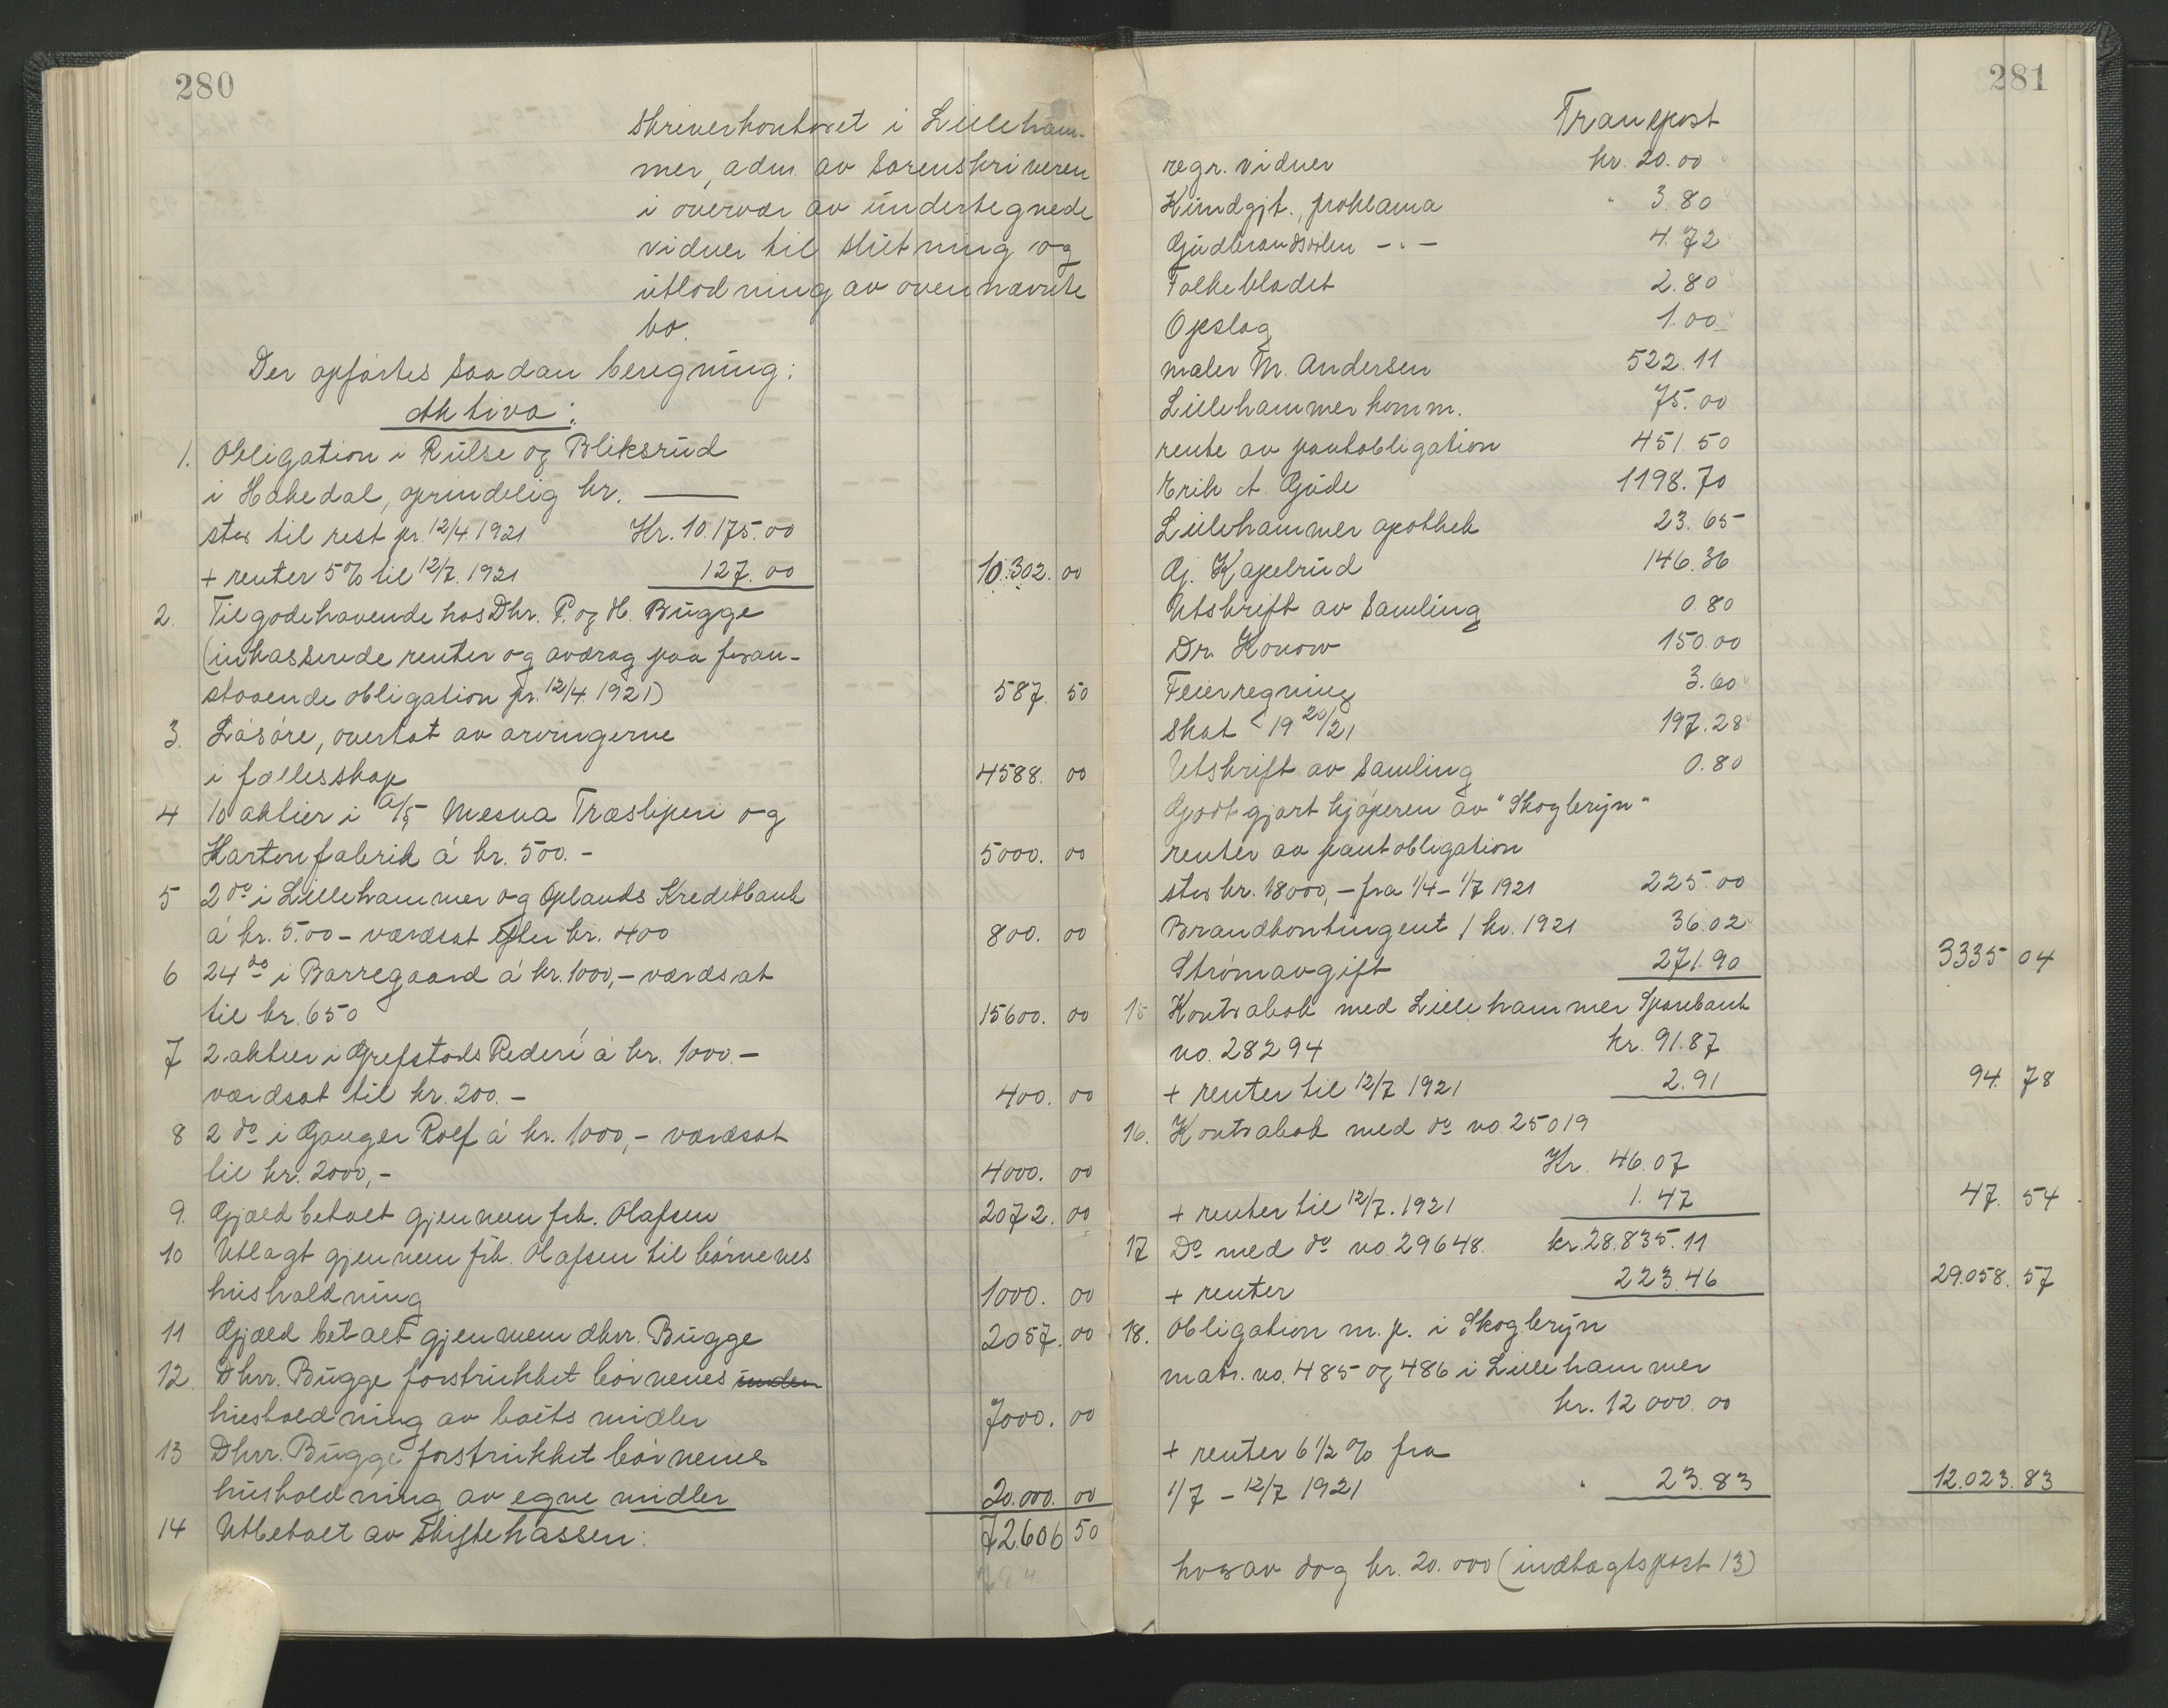 280
skriverkontoret i Lilleham-
mer, adm. av sorenskriveren
i overvær av undertegnede
vidner til slutning og
utlodning av ovennævnte
bo.
Der opførtes saadan beregning:
Aktiva:
1. Obligation i Rulse og Bliksrud
i Hakedal, oprindelig kr. ——
stor til rest pr. 12/4 1921 Kr. 10.175.00
+ renter 5% til 12/7. 1921 127.00 10.302. 00
2. Tilgodehavende hos Dhr. P. og H. Bugge
(inkasserede renter og avdrag paa foran-
staaende obligation pr. 12/4. 1921) 587. 50
3. Løsøre, overtat av arvingerne
i fællesskap 4588. 00
4 10 aktier i A/S Mesna Træsliperi og
Kartonfabrik á kr. 500.- 5000. 00
5 2 do i Lillehammer og Oplands Kreditbank
á kr. 5.00 - værdsat efter kr. 400 800. 00
6 24 do i Borregaard á kr. 1000,- værdsat
til kr. 650 15600. 00
7 2 aktier i Grefstads Rederi á kr. 1000.-
værdsat til kr. 200.- 400. 00
8 2 do i Ganger Rolf á kr. 1000,- værdsat
til kr. 2000,- 4000. 00
9. Gjæld betalt gjennem frk. Olafsen 2072. 00
10 Utlagt gjennem frk. Olafsen til børnenes
husholdning 1000. 00
11 Gjæld betalt gjennem dhrr. Bugge 2057. 00
12. Dhrr. Bugge forstrukket børnenes
husholdning av boets midler 7000. 00
13 Dhrr. Bugge forstrukket børnenes
husholdning av egne midler 20.000. 00
14 Utbetalt av skiftekassen: 72.606 50
281
Transport
regr. vidner kr. 20.00
Kundgjt., proklama " 3.80
Gudbrandsdølen -"- 4.72
Folkebladet 2.80
Opslag 1.00
maler M. Andersen 522.11
Lillehammer komm. 75.00
rente av pantobligation 451.50
Erik A. Gude 1198.70
Lillehammer apothek 23.65
Gj. Kapelrud 146.36
Utskrift av samling 0.80
Dr. Konow 150.00
Feierregning 3.60
Skat 19 20/21 197.28
Utskrift av samling 0.80
Godtgjort kjøperen av "Skogbryn"
renter av pantobligation
stor kr. 18000,- fra 1/4 - 1/7 1921 225.00
Brandkontingent 1 hv. 1921 36.02
Strømavgift 271.90 3335 04
15 Kontrabok med Lillehammer Sparebank
no. 28294 kr. 91.87
+ renter til 12/7 1921 2.91 94. 78
16. Kontrabok med do no. 25019
Kr. 46.07
+ renter til 12/7. 1921 1.47 47. 54
17 Do med do no. 29648. kr. 28.835.11
+ renter 223.46 29.058. 57
18. Obligation m. p. i Skogbryn
matr. no. 485 og 486 i Lillehammer
kr. 12 000.00
+ renter 6 1/2 % fra
1/7 - 12/7 1921 " 23.83 12.023. 83
hvorav dog kr. 20.000 (indtægtspost 13)